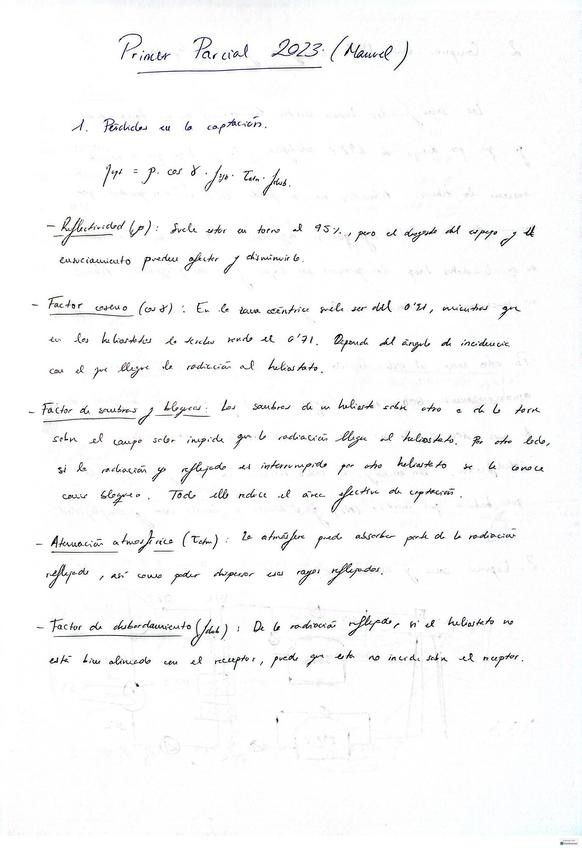 Primer Parcial 2023. (Manuel)
1. Pérdidas en la captación.
= ρ · cos γ · fsyb · τatm · fdesb.
- Reflectividad (ρ): Suele estar en torno al 95%, pero el desgaste del espejo y el
ensuciamiento pueden afectar y disminuirlo.
- Factor coseno (cos γ): En la zona céntrica suele ser del 0'91, mientras que
en los heliostatos la terales ronda el 0'71. Depende del ángulo de incidencia
con el que llegue la radiación al heliostato.
- Factor de sombras y bloqueos: Las sombras de un heliostato sobre otro o de la torre
sobre el campo solar impide que la radiación llegue al heliostato. Por otro lado,
si la radiación ya reflejada es interrumpida por otro heliostato se le conoce
como bloqueo. Todo ello reduce el área efectiva de captación.
- Atenuación atmosférica (τatm): La atmósfera puede absorber parte de la radiación
reflejada, así como poder dispersar esos rayos reflejados.
- Factor de desbordamiento (fdesb): De la radiación reflejada, si el heliostato no
está bien alineado con el receptor, puede que esta no incida sobre el receptor.